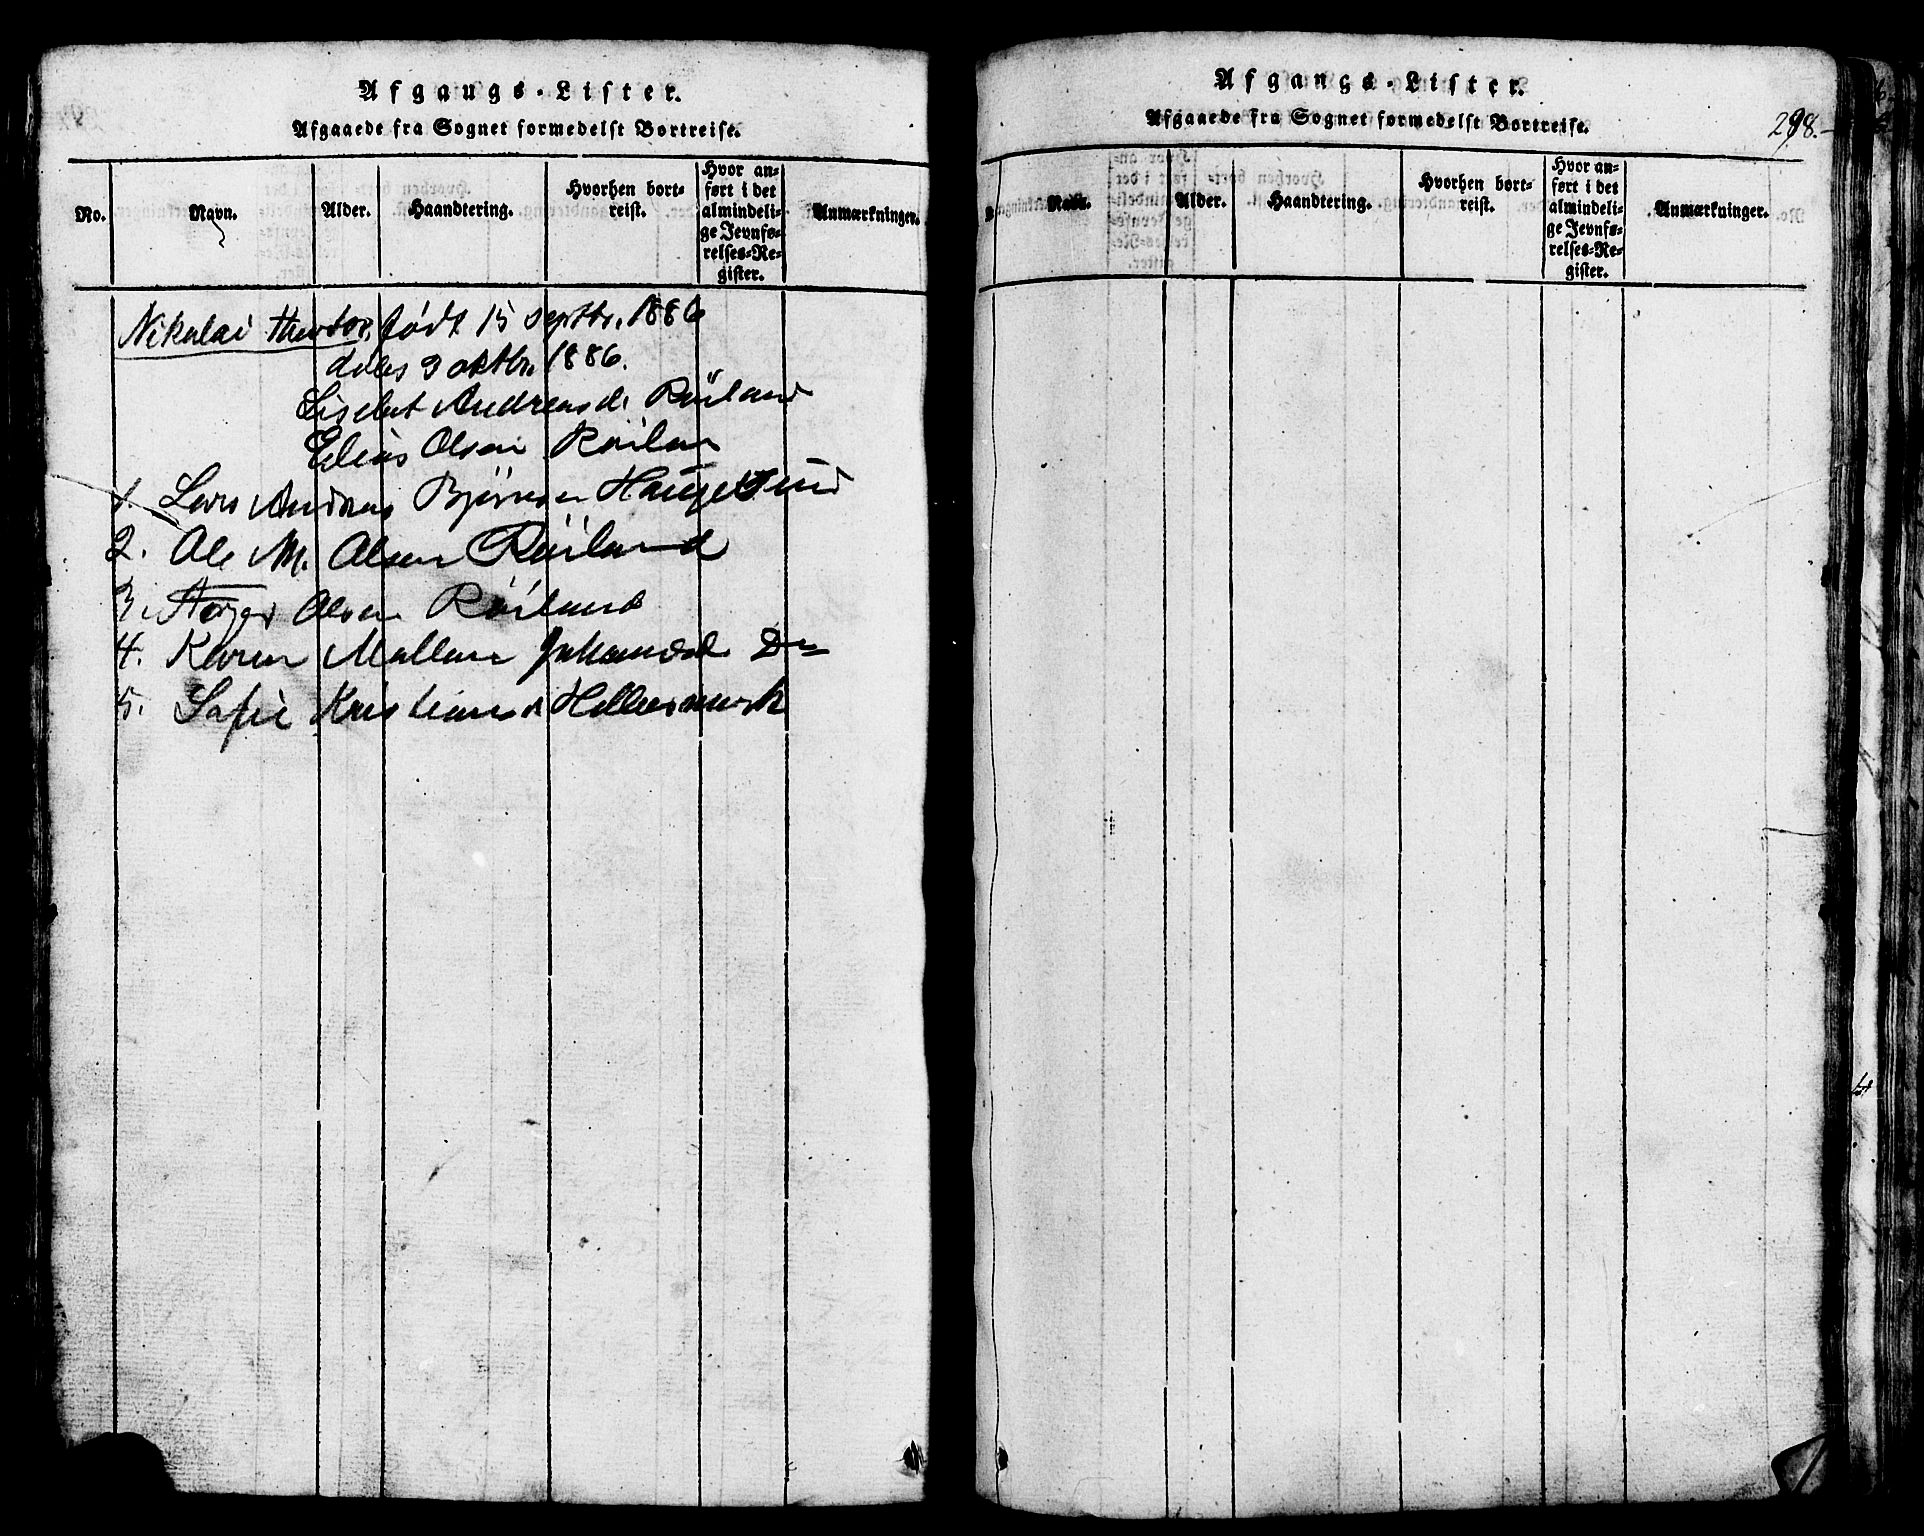 Afgangs-Lister.
Afgaaede fra Sognet formedelst Bortreise.
No.
Navn.
Alder.
Haandtering.
Hvorhen bort-
reist.
Hvor an-
ført i det
almindeli-
ge Jevnfø-
relses-Re-
gister.
Anmærkninger.
Nikolai født 15 septbr. 1886
døbes 3 oktbr. 1886.
Andreasd. Røiland
Elias Olsen
1. Lars Andreas Bjørnsen Haugesund
2. Ole M. Olsen Røiland
3. Olsen Røiland
4. Karen Do
5. Kristians
Afgangs-Lister.
Afgaaede fra Sognet formedelst Bortreise.
298.
Navn.
Alder.
Haandtering.
Hvorhen bort-
reist.
Hvor an-
ført i det
almindeli-
ge Jevnfø-
relses-Re-
gister.
Anmærkninger.